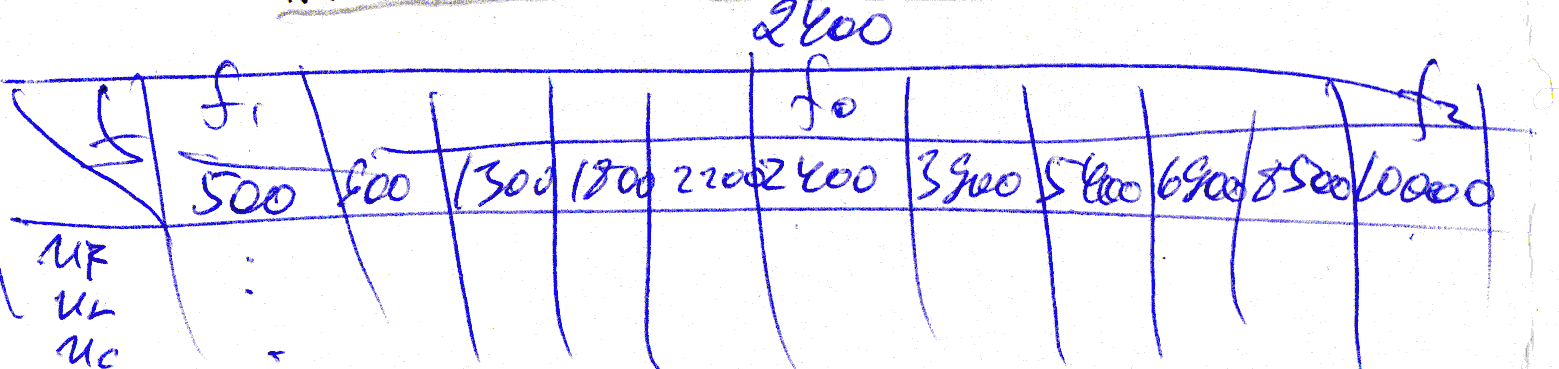 2400
f f₁ f₀ f₂
500 800 1300 1800 2200 2400 3900 5400 6900 8500 10000
UR
UL
UC